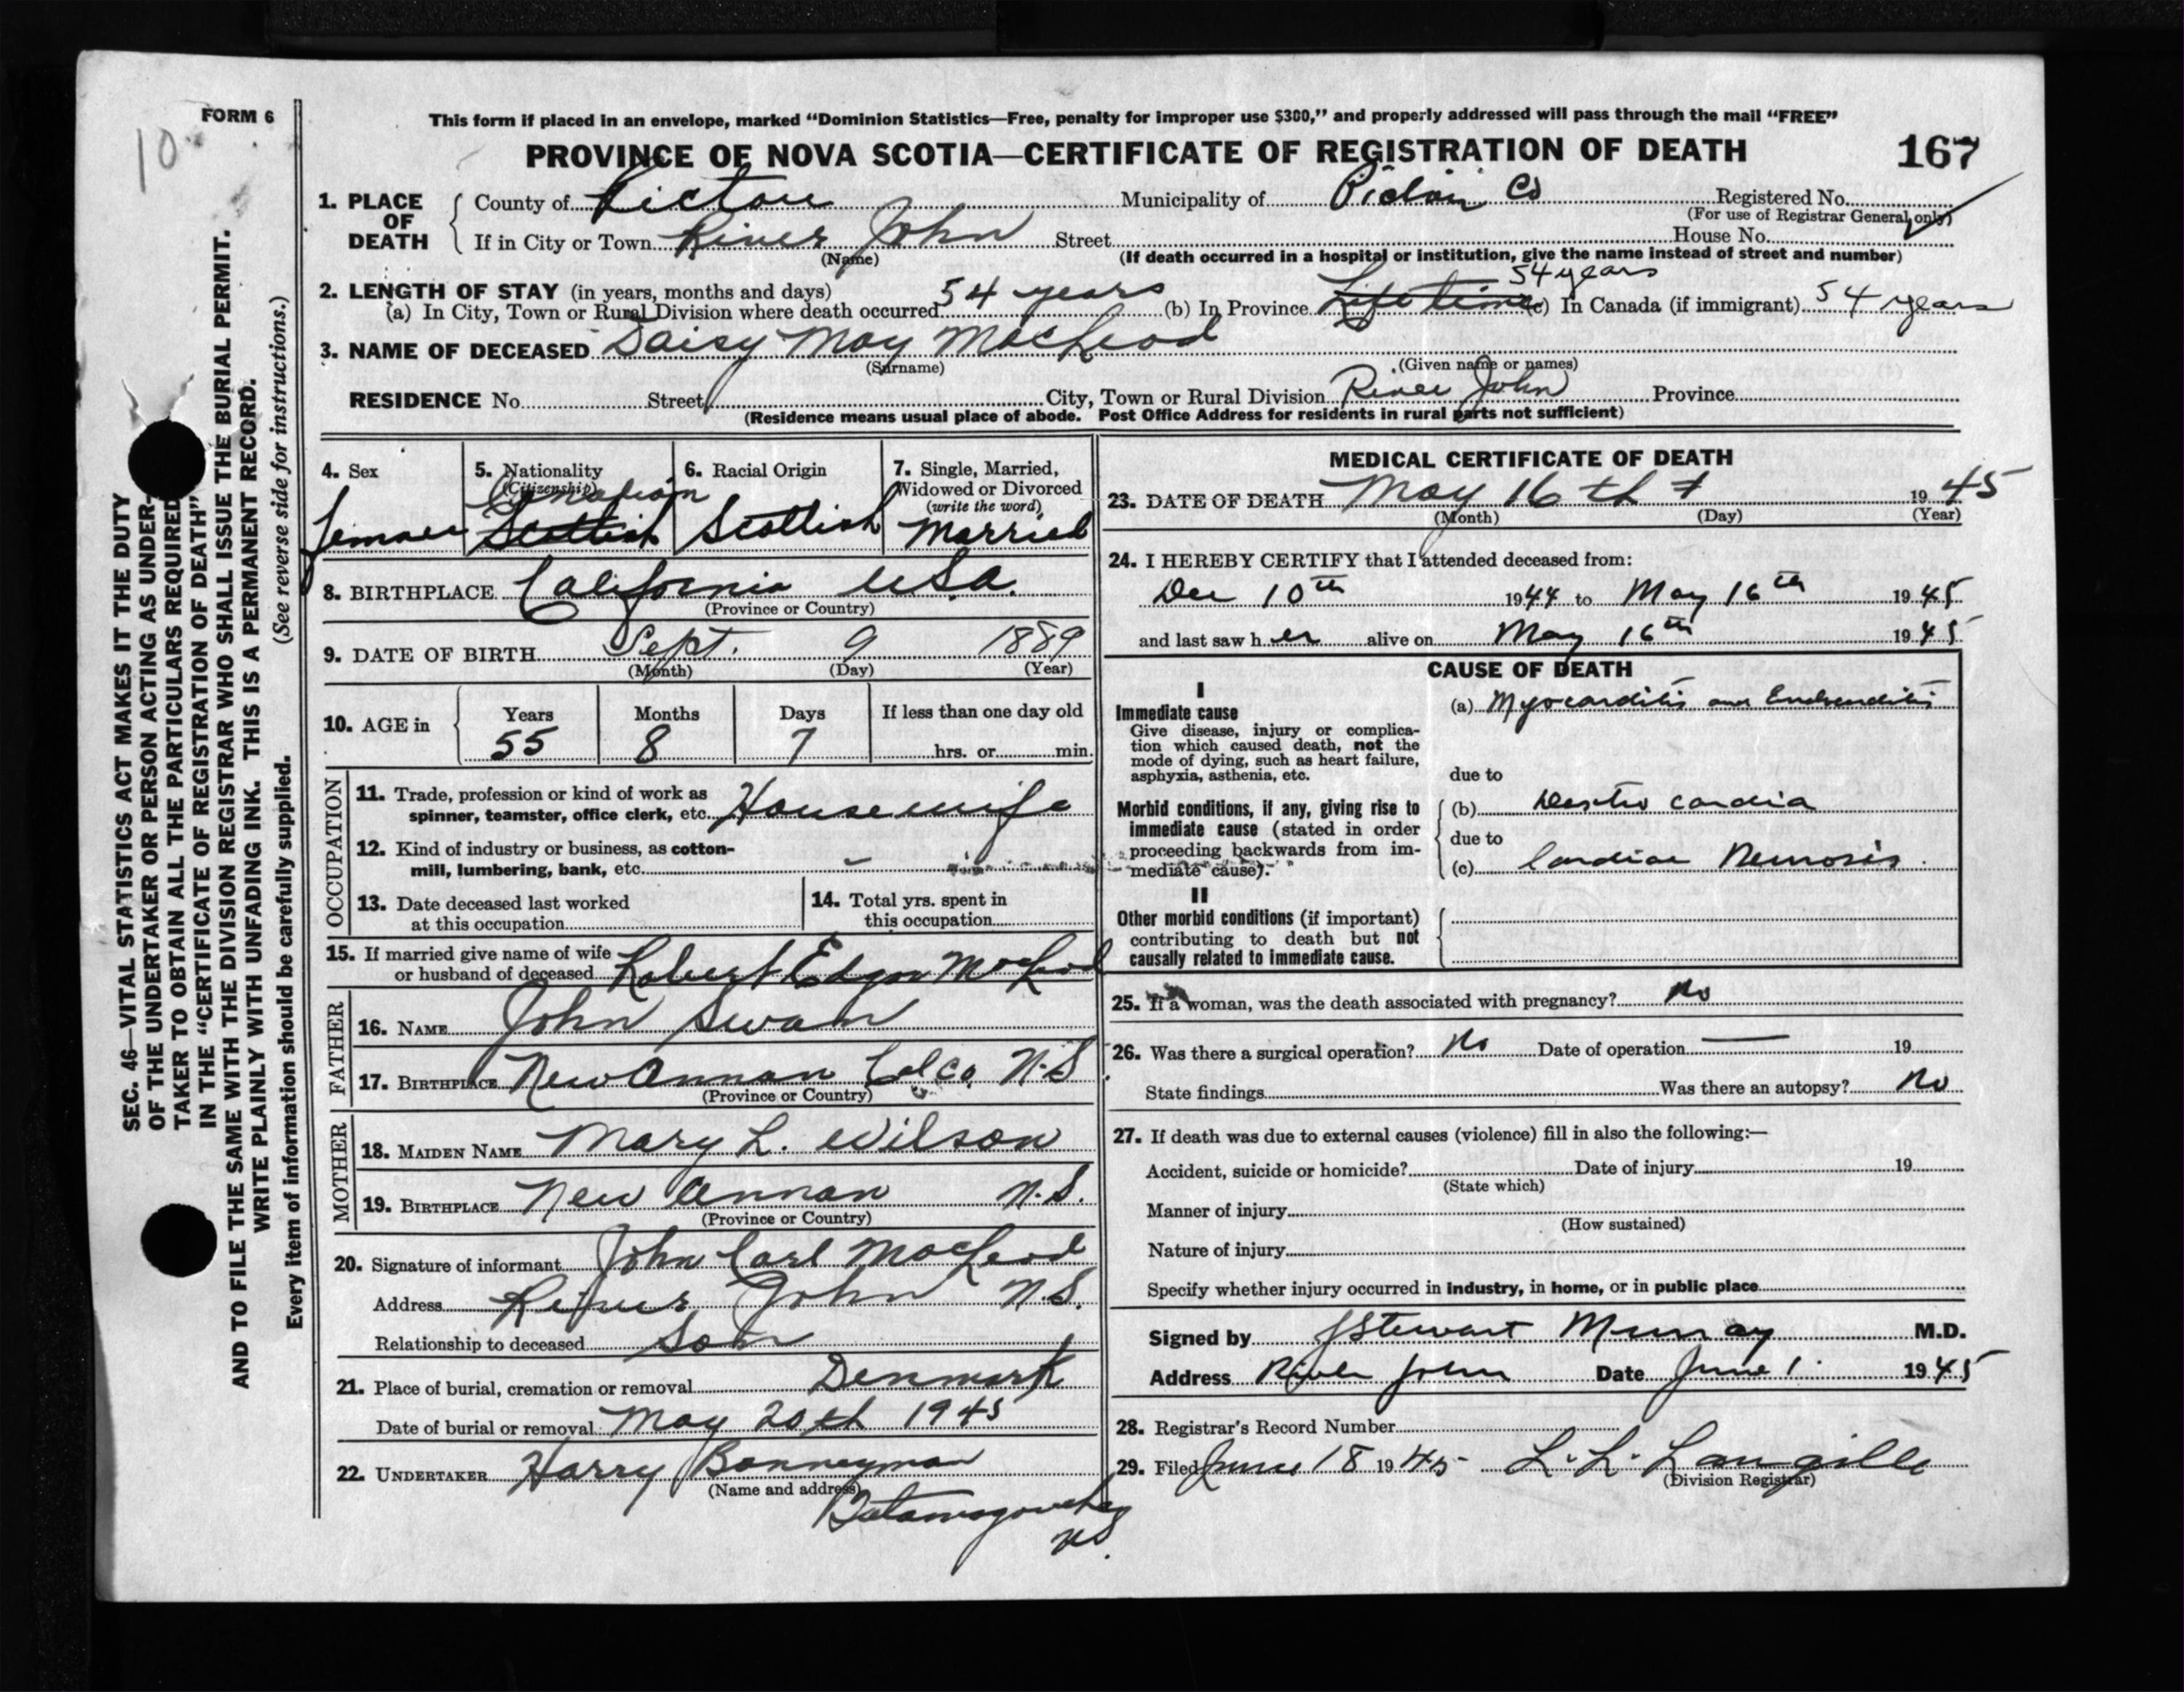 FORM 6
10
This form if placed in an envelope, marked “Dominion Statistics—Free, penalty for improper use $300,” and properly addressed will pass through the mail “FREE”
PROVINCE OF NOVA SCOTIA—CERTIFICATE OF REGISTRATION OF DEATH
167
1. PLACE OF DEATH
County of Pictou Municipality of Pictou Co Registered No.
(For use of Registrar General only)
If in City or Town River John Street House No.
(Name) (If death occurred in a hospital or institution, give the name instead of street and number)
54 years
2. LENGTH OF STAY (in years, months and days)
(a) In City, Town or Rural Division where death occurred 54 years (b) In Province Life time (c) In Canada (if immigrant) 54 years
3. NAME OF DECEASED Daisy May MacLeod
(Surname) (Given name or names)
RESIDENCE No. Street City, Town or Rural Division River John Province
(Residence means usual place of abode. Post Office Address for residents in rural parts not sufficient)
4. Sex
Female
5. Nationality
(Citizenship)
Canadian
Scottish
6. Racial Origin
Scottish
7. Single, Married,
Widowed or Divorced
(write the word)
Married
8. BIRTHPLACE California U.S.A.
(Province or Country)
9. DATE OF BIRTH Sept. 9 1889
(Month) (Day) (Year)
10. AGE in
Years Months Days If less than one day old
55 8 7 hrs. or min.
OCCUPATION
11. Trade, profession or kind of work as
spinner, teamster, office clerk, etc. Housewife
12. Kind of industry or business, as cotton-
mill, lumbering, bank, etc. –
13. Date deceased last worked
at this occupation
14. Total yrs. spent in
this occupation
15. If married give name of wife
or husband of deceased Robert Edgar McLeod
FATHER
16. NAME John Swan
17. BIRTHPLACE New Annan Col Co. N.S
(Province or Country)
MOTHER
18. MAIDEN NAME Mary L. Wilson
19. BIRTHPLACE New Annan N.S.
(Province or Country)
20. Signature of informant John Carl MacLeod
Address River John N.S.
Relationship to deceased Son
21. Place of burial, cremation or removal Denmark
Date of burial or removal May 20th 1945
22. UNDERTAKER Harry Bonnyman
(Name and address)
Tatamagouche
N.S.
MEDICAL CERTIFICATE OF DEATH
23. DATE OF DEATH May 16th 1945
(Month) (Day) (Year)
24. I HEREBY CERTIFY that I attended deceased from:
Dec 10th 1944 to May 16th 1945
and last saw her alive on May 16th 1945
CAUSE OF DEATH
I
Immediate cause
Give disease, injury or complica-
tion which caused death, not the
mode of dying, such as heart failure,
asphyxia, asthenia, etc.
(a) Myocarditis and Endocarditis
due to
Morbid conditions, if any, giving rise to
immediate cause (stated in order
proceeding backwards from im-
mediate cause).
(b) Dextro cardia
due to
(c) Cardiac
II
Other morbid conditions (if important)
contributing to death but not
causally related to immediate cause.
25. If a woman, was the death associated with pregnancy? No
26. Was there a surgical operation? No Date of operation — 19
State findings Was there an autopsy? No
27. If death was due to external causes (violence) fill in also the following:—
Accident, suicide or homicide? Date of injury 19
(State which)
Manner of injury
(How sustained)
Nature of injury
Specify whether injury occurred in industry, in home, or in public place
Signed by J Stewart Murray M.D.
Address River John Date June 1. 1945
28. Registrar's Record Number
29. Filed June 18 1945 L. L. Langille
(Division Registrar)
SEC. 46—VITAL STATISTICS ACT MAKES IT THE DUTY
OF THE UNDERTAKER OR PERSON ACTING AS UNDER-
TAKER TO OBTAIN ALL THE PARTICULARS REQUIRED
IN THE “CERTIFICATE OF REGISTRATION OF DEATH”
AND TO FILE THE SAME WITH THE DIVISION REGISTRAR WHO SHALL ISSUE THE BURIAL PERMIT.
WRITE PLAINLY WITH UNFADING INK. THIS IS A PERMANENT RECORD.
Every item of information should be carefully supplied. (See reverse side for instructions.)